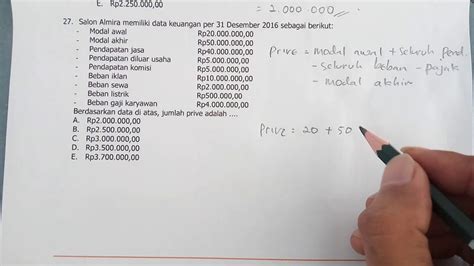 E. Rp2.250.000,00
= 2.000.000
27. Salon Almira memiliki data keuangan per 31 Desember 2016 sebagai berikut:
- Modal awal Rp20.000.000,00
- Modal akhir Rp50.000.000,00
- Pendapatan jasa Rp40.000.000,00
- Pendapatan diluar usaha Rp5.000.000,00
- Pendapatan komisi Rp5.000.000,00
- Beban iklan Rp10.000.000,00
- Beban sewa Rp2.000.000,00
- Beban listrik Rp500.000,00
- Beban gaji karyawan Rp4.000.000,00
Berdasarkan data di atas, jumlah prive adalah ....
A. Rp2.000.000,00
B. Rp2.500.000,00
C. Rp3.000.000,00
D. Rp3.500.000,00
E. Rp3.700.000,00
Prive = modal awal + seluruh pend.
- seluruh beban - pajak
- modal akhir
Prive = 20 + 50